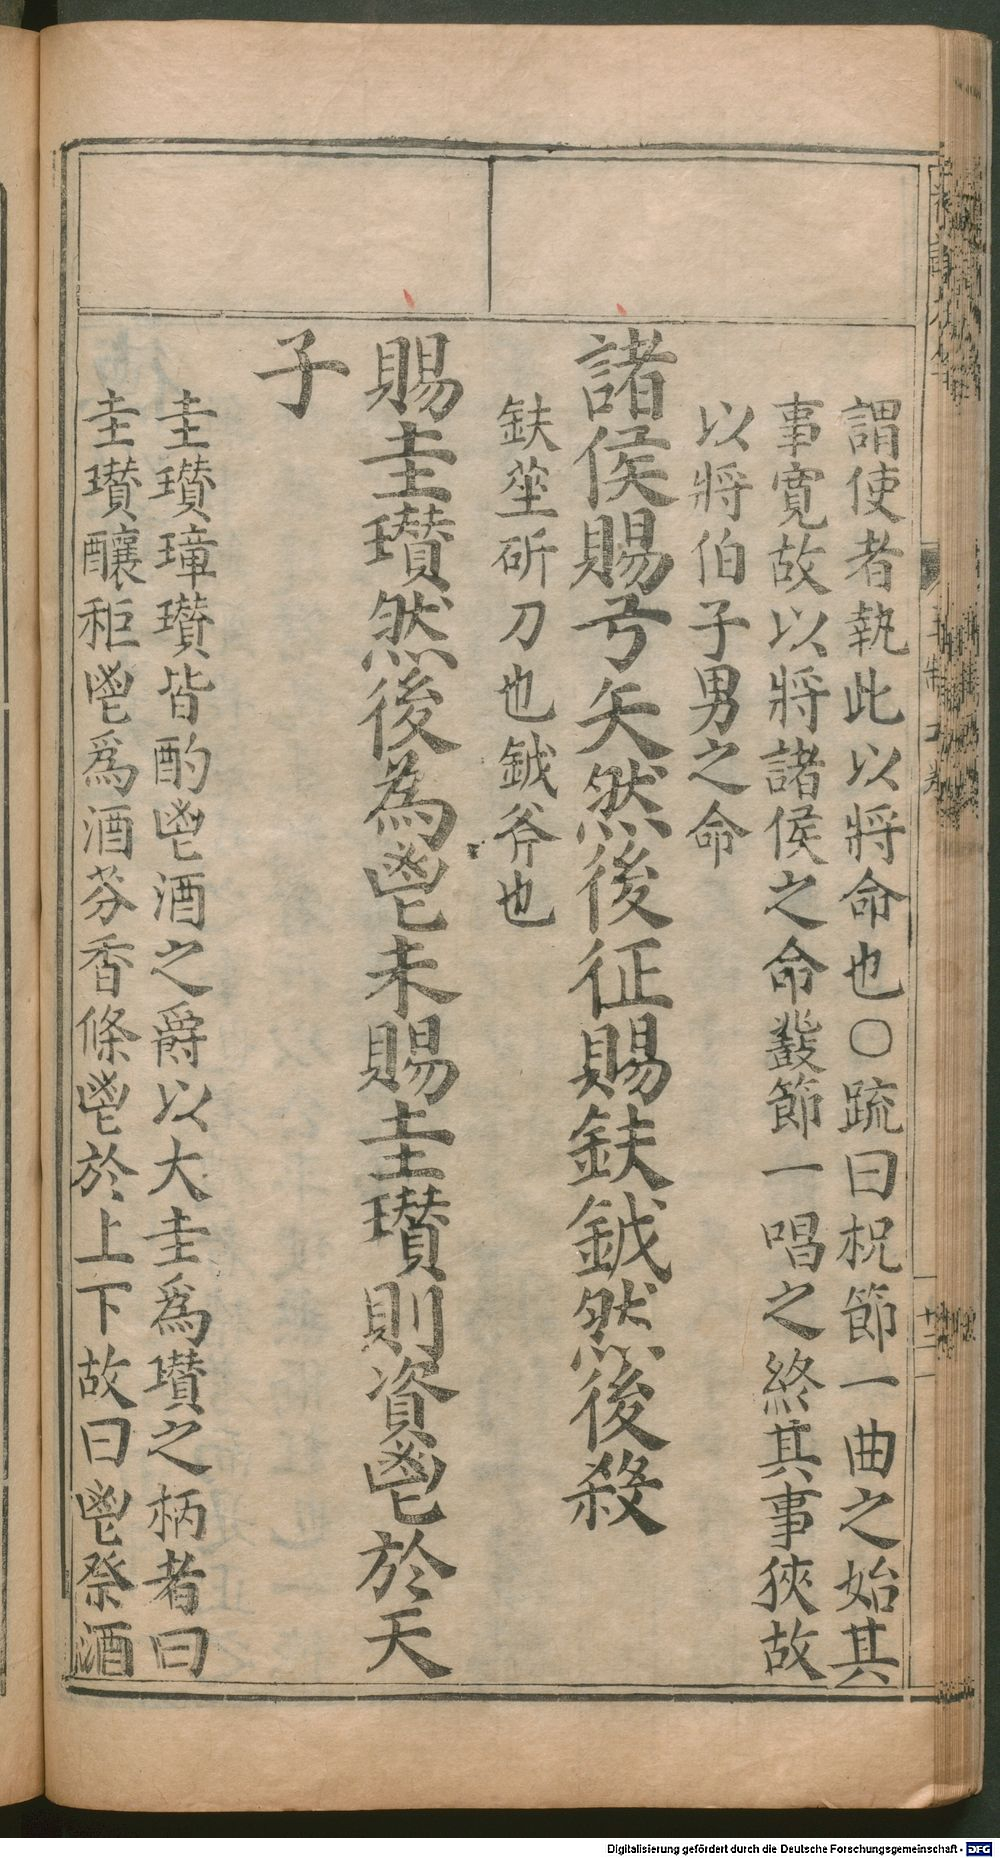 謂使者執此以將命也○疏曰柷節一曲之始其
事寬故以將諸侯之命鼗節一唱之終其事狹故
以將伯子男之命
諸侯賜弓矢然後征賜鈇鉞然後殺
鈇莝斫刀也鉞斧也
賜圭瓚然後為鬯未賜圭瓚則資鬯於天
子
圭瓚璋瓚皆酌鬯酒之爵以大圭爲瓚之柄者曰
圭瓚釀秬鬯爲酒芬香條鬯於上下故曰鬯祭酒
十二
Digitalisierung gefördert durch die Deutsche Forschungsgemeinschaft - DFG